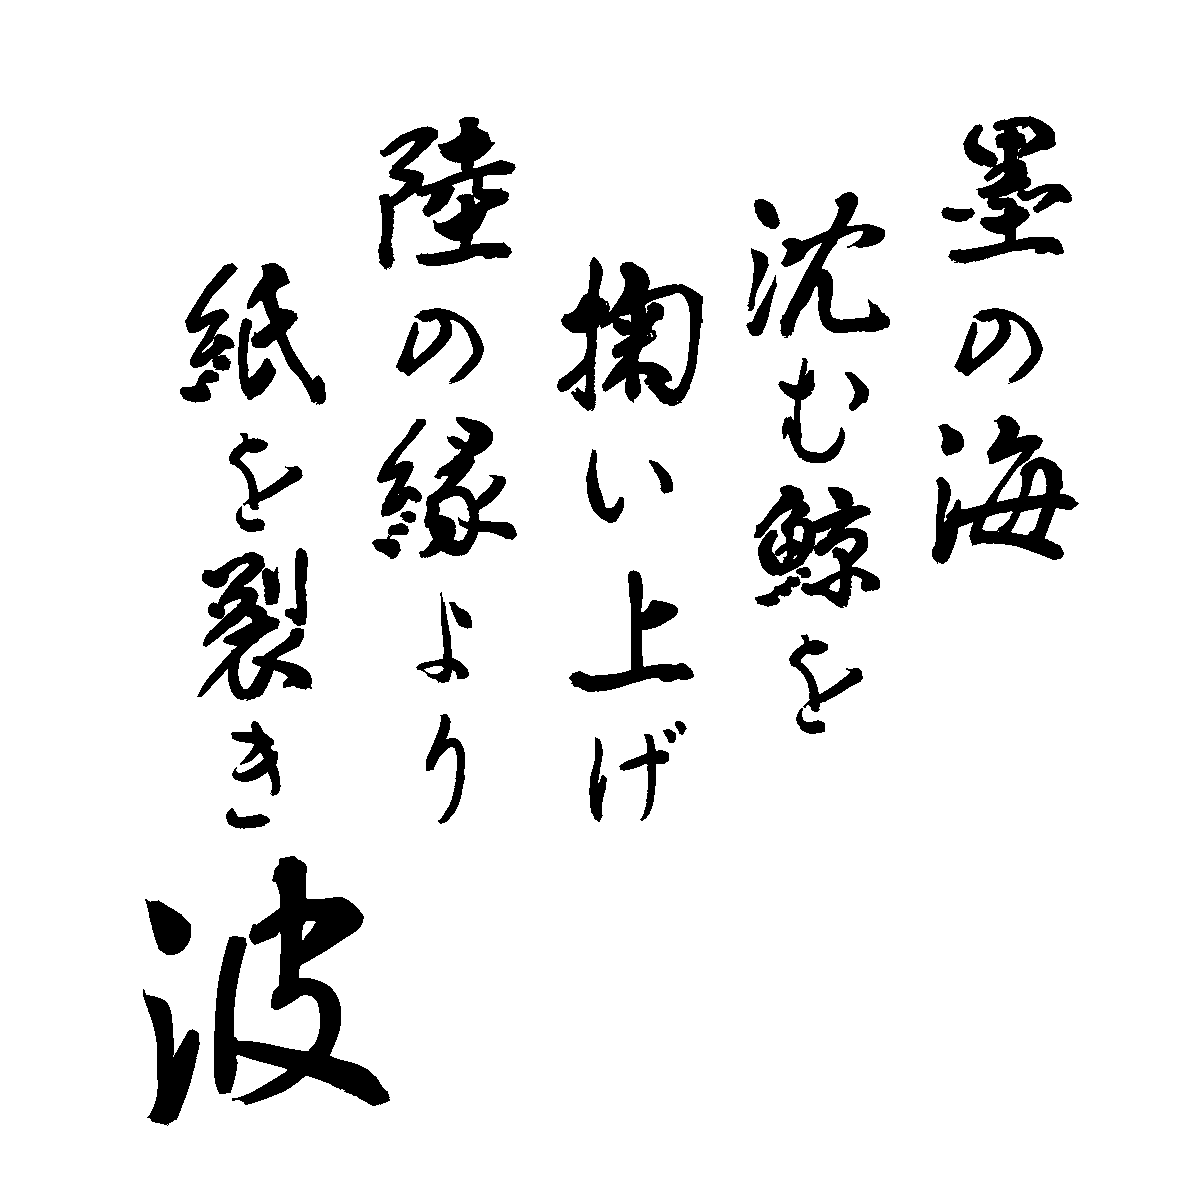 墨の海
沈む鯨を
掬い上げ
陸の縁より
紙を裂き
波